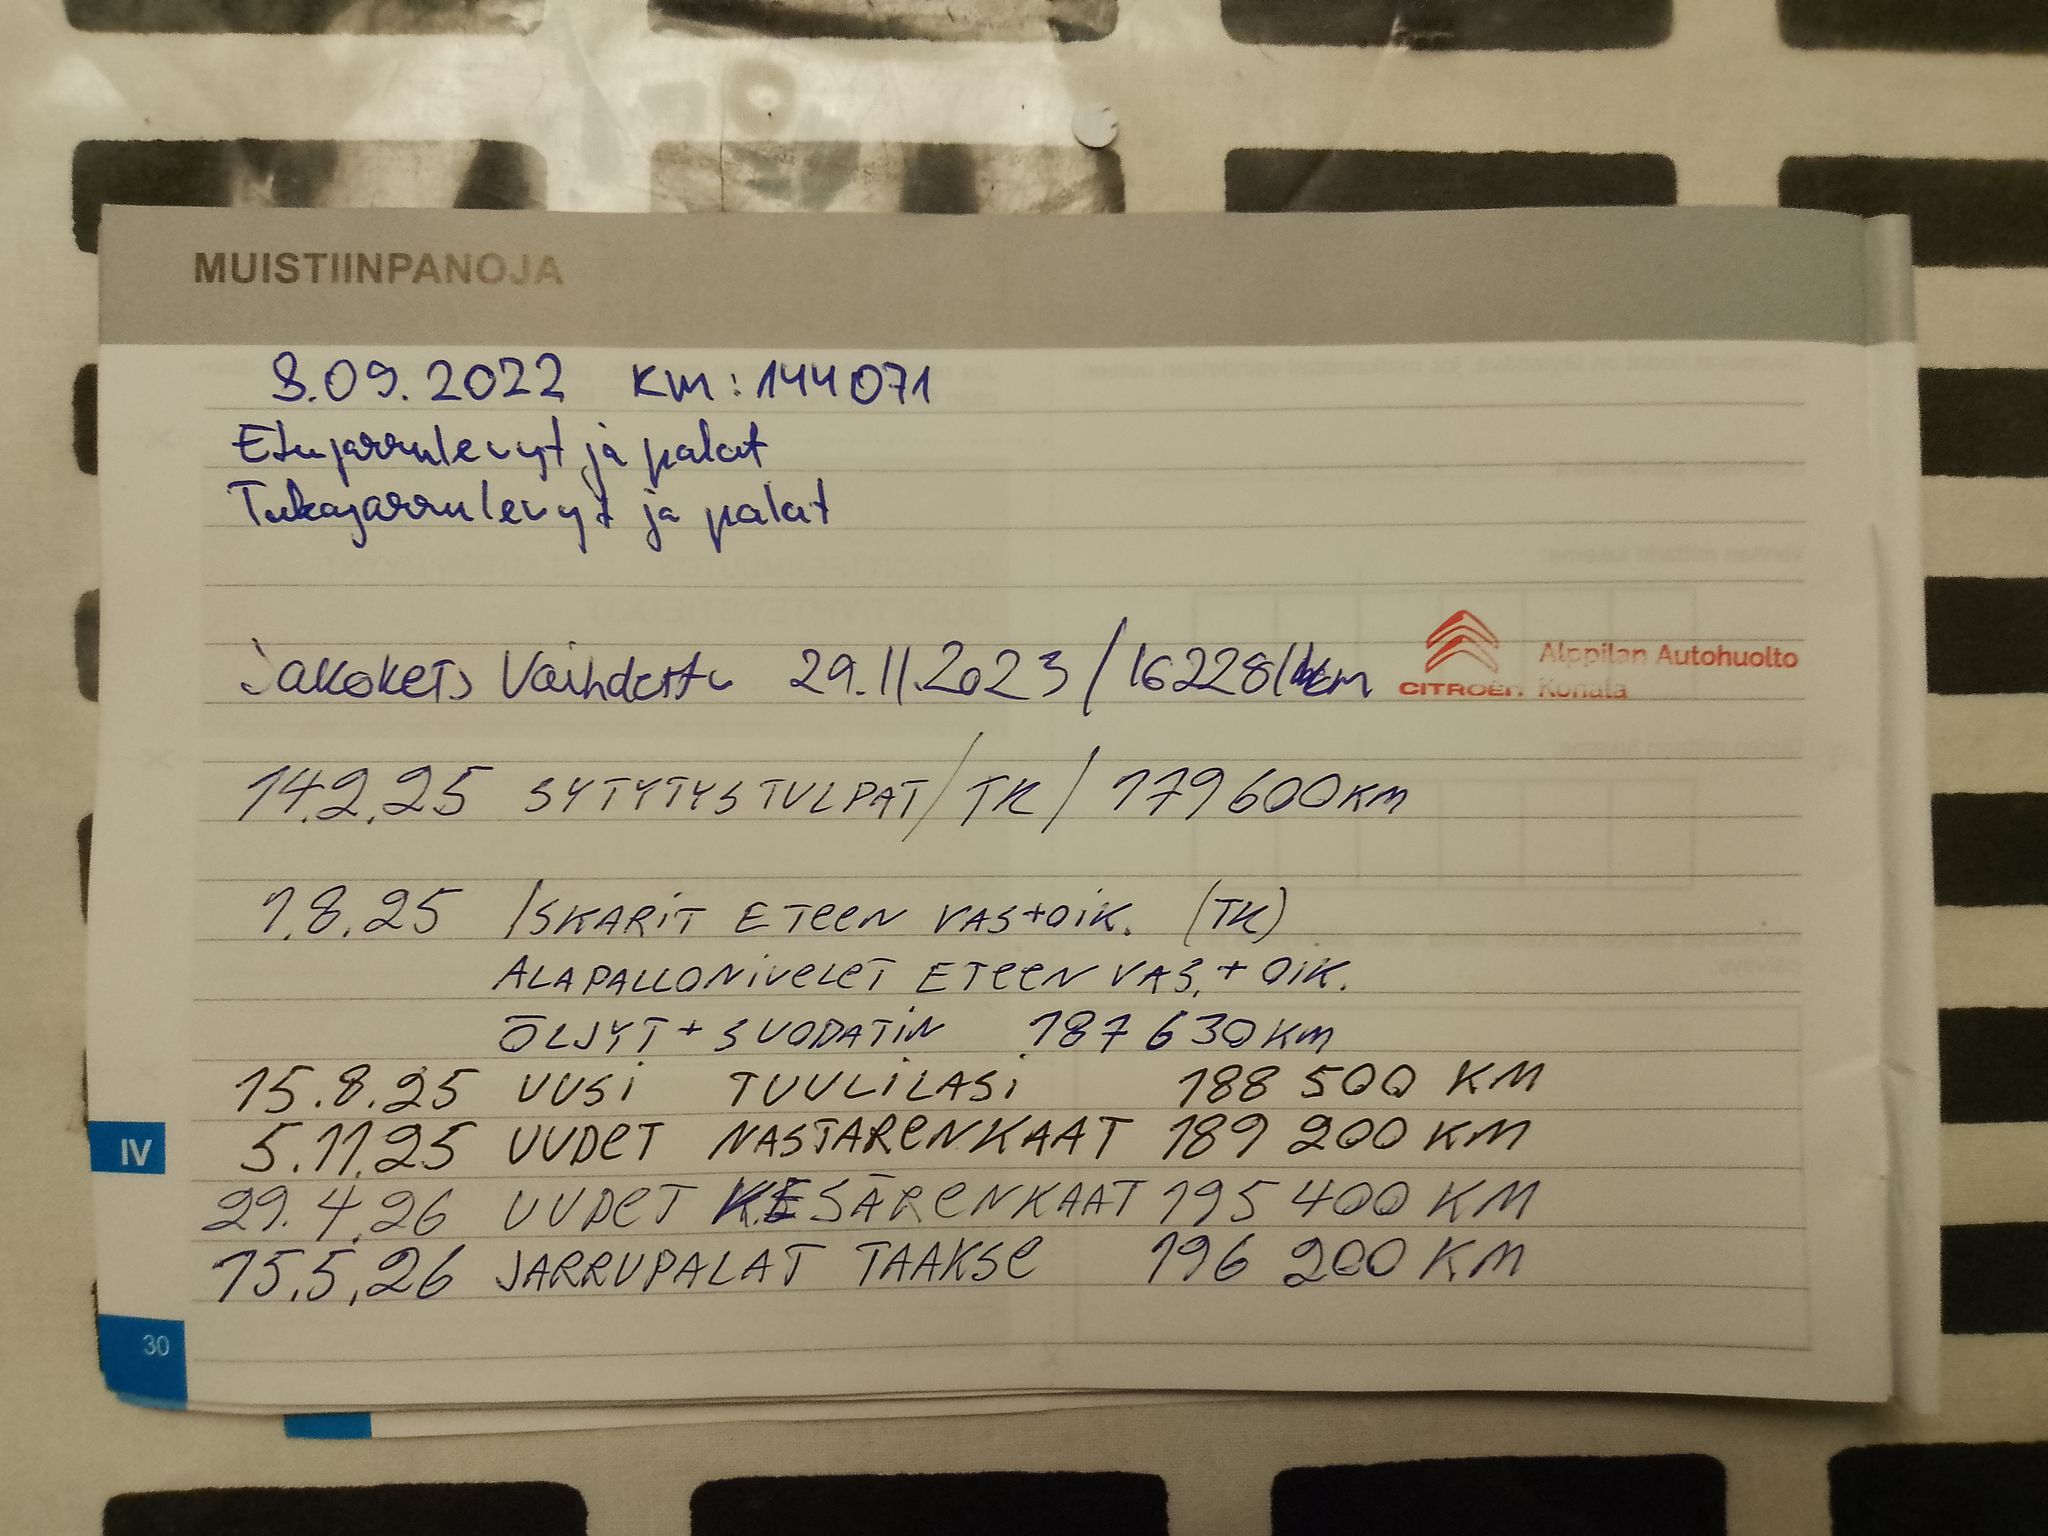 MUISTIINPANOJA
9.09.2022 KM: 144071
Etujarrulevyt ja palat
Takajarrulevyt ja palat
Jakoketju Vaihdettu 29.11.2023 / 162281 km
CITROËN Alppilan Autohuolto
Konala
14.2.25 SYTYTYSTULPAT / TK / 179 600 KM
1.8.25 ISKARIT ETEEN VAS+OIK. (TK)
ALAPALLONIVELET ETEEN VAS.+ OIK.
ÖLJYT + SUODATIN 187 630 KM
15.8.25 UUSI TUULILASI 188 500 KM
5.11.25 UUDET NASTARENKAAT 189 200 KM
29.4.26 UUDET KESÄRENKAAT 195 400 KM
15.5.26 JARRUPALAT TAAKSE 196 200 KM
IV
30